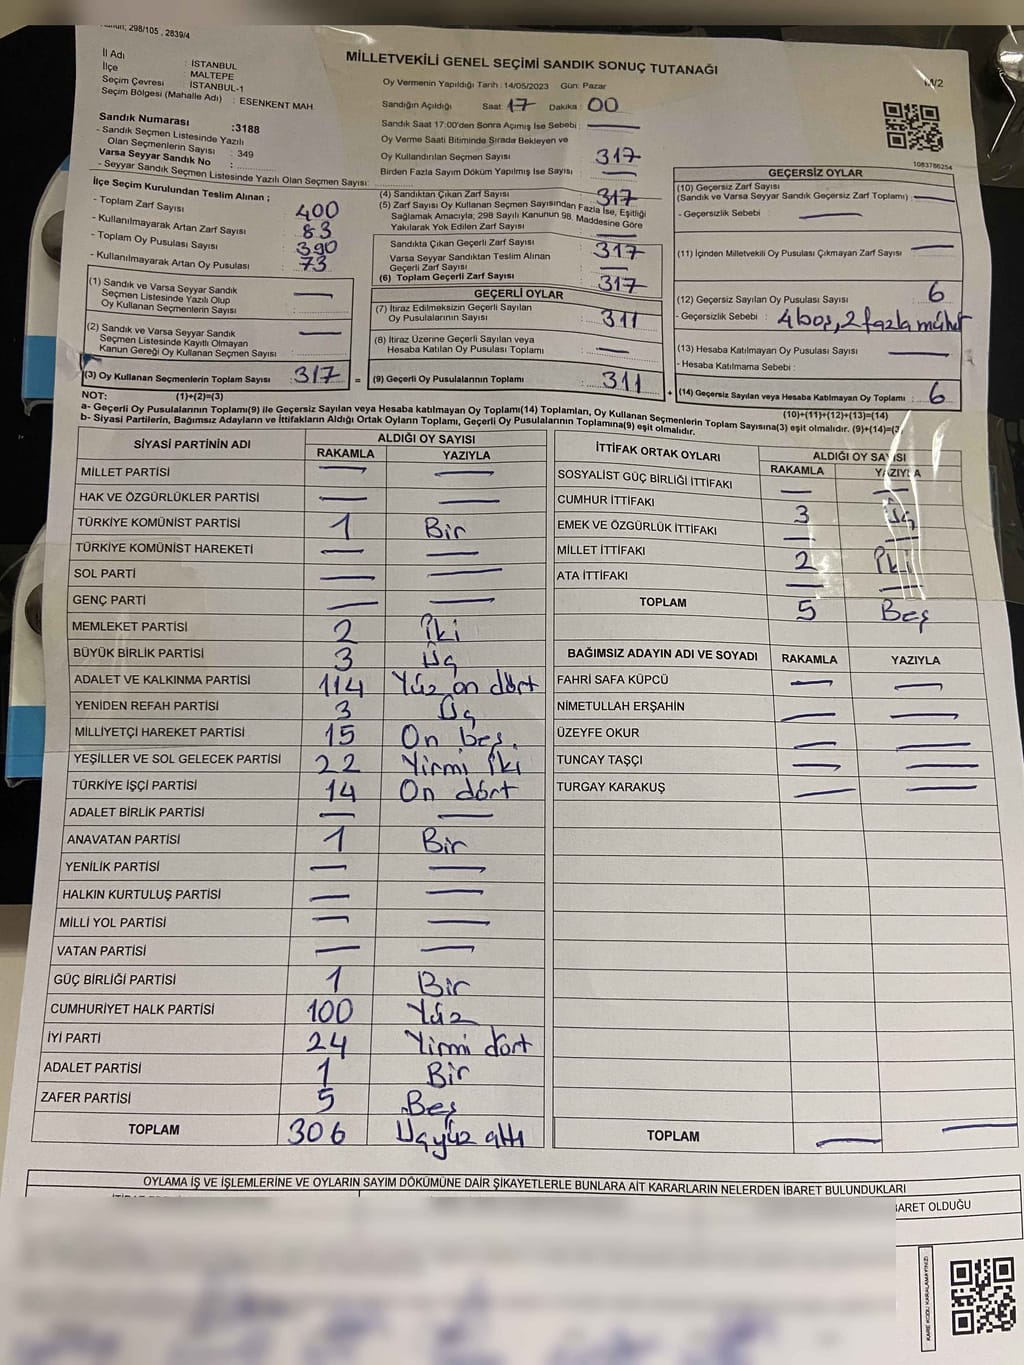 298/105, 2839/4
MİLLETVEKİLİ GENEL SEÇİMİ SANDIK SONUÇ TUTANAĞI
İl Adı : İSTANBUL
İlçe : MALTEPE
Seçim Çevresi : İSTANBUL-1
Seçim Bölgesi (Mahalle Adı) : ESENKENT MAH.
Sandık Numarası :3188
- Sandık Seçmen Listesinde Yazılı
Olan Seçmenlerin Sayısı : 349
Varsa Seyyar Sandık No :
- Seyyar Sandık Seçmen Listesinde Yazılı Olan Seçmen Sayısı:
Oy Vermenin Yapıldığı Tarih : 14/05/2023 Gün: Pazar
Sandığın Açıldığı Saat: 17 Dakika : 00
Sandık Saat 17:00'den Sonra Açımış İse Sebebi : —
Oy Verme Saati Bitiminde Sırada Bekleyen ve
Oy Kullandırılan Seçmen Sayısı 317
Birden Fazla Sayım Döküm Yapılmış İse Sayısı : —
/2
1083786254
İlçe Seçim Kurulundan Teslim Alınan ;
- Toplam Zarf Sayısı 400
- Kullanılmayarak Artan Zarf Sayısı 83
- Toplam Oy Pusulası Sayısı 390
- Kullanılmayarak Artan Oy Pusulası 73
(1) Sandık ve Varsa Seyyar Sandık
Seçmen Listesinde Yazılı Olup
Oy Kullanan Seçmenlerin Sayısı : —
(2) Sandık ve Varsa Seyyar Sandık
Seçmen Listesinde Kayıtlı Olmayan
Kanun Gereği Oy Kullanan Seçmen Sayısı : —
(3) Oy Kullanan Seçmenlerin Toplam Sayısı : 317 =
(4) Sandıktan Çıkan Zarf Sayısı : 317
(5) Zarf Sayısı Oy Kullanan Seçmen Sayısından Fazla İse, Eşitliği
Sağlamak Amacıyla; 298 Sayılı Kanunun 98. Maddesine Göre
Yakılarak Yok Edilen Zarf Sayısı : —
Sandıkta Çıkan Geçerli Zarf Sayısı : 317
Varsa Seyyar Sandıktan Teslim Alınan
Geçerli Zarf Sayısı : —
(6) Toplam Geçerli Zarf Sayısı : 317
GEÇERLİ OYLAR
(7) İtiraz Edilmeksizin Geçerli Sayılan
Oy Pusulalarının Sayısı : 311
(8) İtiraz Üzerine Geçerli Sayılan veya
Hesaba Katılan Oy Pusulası Toplamı : —
(9) Geçerli Oy Pusulalarının Toplamı : 311 +
GEÇERSİZ OYLAR
(10) Geçersiz Zarf Sayısı
(Sandık ve Varsa Seyyar Sandık Geçersiz Zarf Toplamı) : —
- Geçersizlik Sebebi : —
(11) İçinden Milletvekili Oy Pusulası Çıkmayan Zarf Sayısı : —
(12) Geçersiz Sayılan Oy Pusulası Sayısı : 6
- Geçersizlik Sebebi : 4 boş, 2 fazla mühür
(13) Hesaba Katılmayan Oy Pusulası Sayısı : —
- Hesaba Katılmama Sebebi :
(14) Geçersiz Sayılan veya Hesaba Katılmayan Oy Toplamı : 6
NOT: (1)+(2)=(3) (10)+(11)+(12)+(13)=(14)
a- Geçerli Oy Pusulaları Toplamı(9) ile Geçersiz Sayılan veya Hesaba katılmayan Oy Toplamı(14) Toplamları, Oy Kullanan Seçmenlerin Toplam Sayısına(3) eşit olmalıdır. (9)+(14)=(3
b- Siyasi Partilerin, Bağımsız Adayların ve İttifakların Aldığı Ortak Oyların Toplamı, Geçerli Oy Pusulalarının Toplamına(9) eşit olmalıdır.
SİYASİ PARTİNİN ADI ALDIĞI OY SAYISI
RAKAMLA YAZIYLA
MİLLET PARTİSİ — —
HAK VE ÖZGÜRLÜKLER PARTİSİ — —
TÜRKİYE KOMÜNİST PARTİSİ 1 Bir
TÜRKİYE KOMÜNİST HAREKETİ — —
SOL PARTİ — —
GENÇ PARTİ — —
MEMLEKET PARTİSİ 2 İki
BÜYÜK BİRLİK PARTİSİ 3 Üç
ADALET VE KALKINMA PARTİSİ 114 Yüz on dört
YENİDEN REFAH PARTİSİ 3 Üç
MİLLİYETÇİ HAREKET PARTİSİ 15 On beş.
YEŞİLLER VE SOL GELECEK PARTİSİ 22 Yirmi İki
TÜRKİYE İŞÇİ PARTİSİ 14 On dört
ADALET BİRLİK PARTİSİ — —
ANAVATAN PARTİSİ 1 Bir
YENİLİK PARTİSİ — —
HALKIN KURTULUŞ PARTİSİ — —
MİLLİ YOL PARTİSİ — —
VATAN PARTİSİ — —
GÜÇ BİRLİĞİ PARTİSİ 1 Bir
CUMHURİYET HALK PARTİSİ 100 Yüz
İYİ PARTİ 24 Yirmi dört
ADALET PARTİSİ 1 Bir
ZAFER PARTİSİ 5 Beş
TOPLAM 306 Üçyüz altı
İTTİFAK ORTAK OYLARI ALDIĞI OY SAYISI
RAKAMLA YAZIYLA
SOSYALİST GÜÇ BİRLİĞİ İTTİFAKI — —
CUMHUR İTTİFAKI 3 Üç
EMEK VE ÖZGÜRLÜK İTTİFAKI — —
MİLLET İTTİFAKI 2 İki
ATA İTTİFAKI — —
TOPLAM 5 Beş
BAĞIMSIZ ADAYIN ADI VE SOYADI RAKAMLA YAZIYLA
FAHRİ SAFA KÜPCÜ — —
NİMETULLAH ERŞAHİN — —
ÜZEYFE OKUR — —
TUNCAY TAŞÇI — —
TURGAY KARAKUŞ — —
TOPLAM — —
OYLAMA İŞ VE İŞLEMLERİNE VE OYLARIN SAYIM DÖKÜMÜNE DAİR ŞİKAYETLERLE BUNLARA AİT KARARLARIN NELERDEN İBARET BULUNDUKLARI
BARET OLDUĞU
KARE KODU KARALAMAYINIZ!